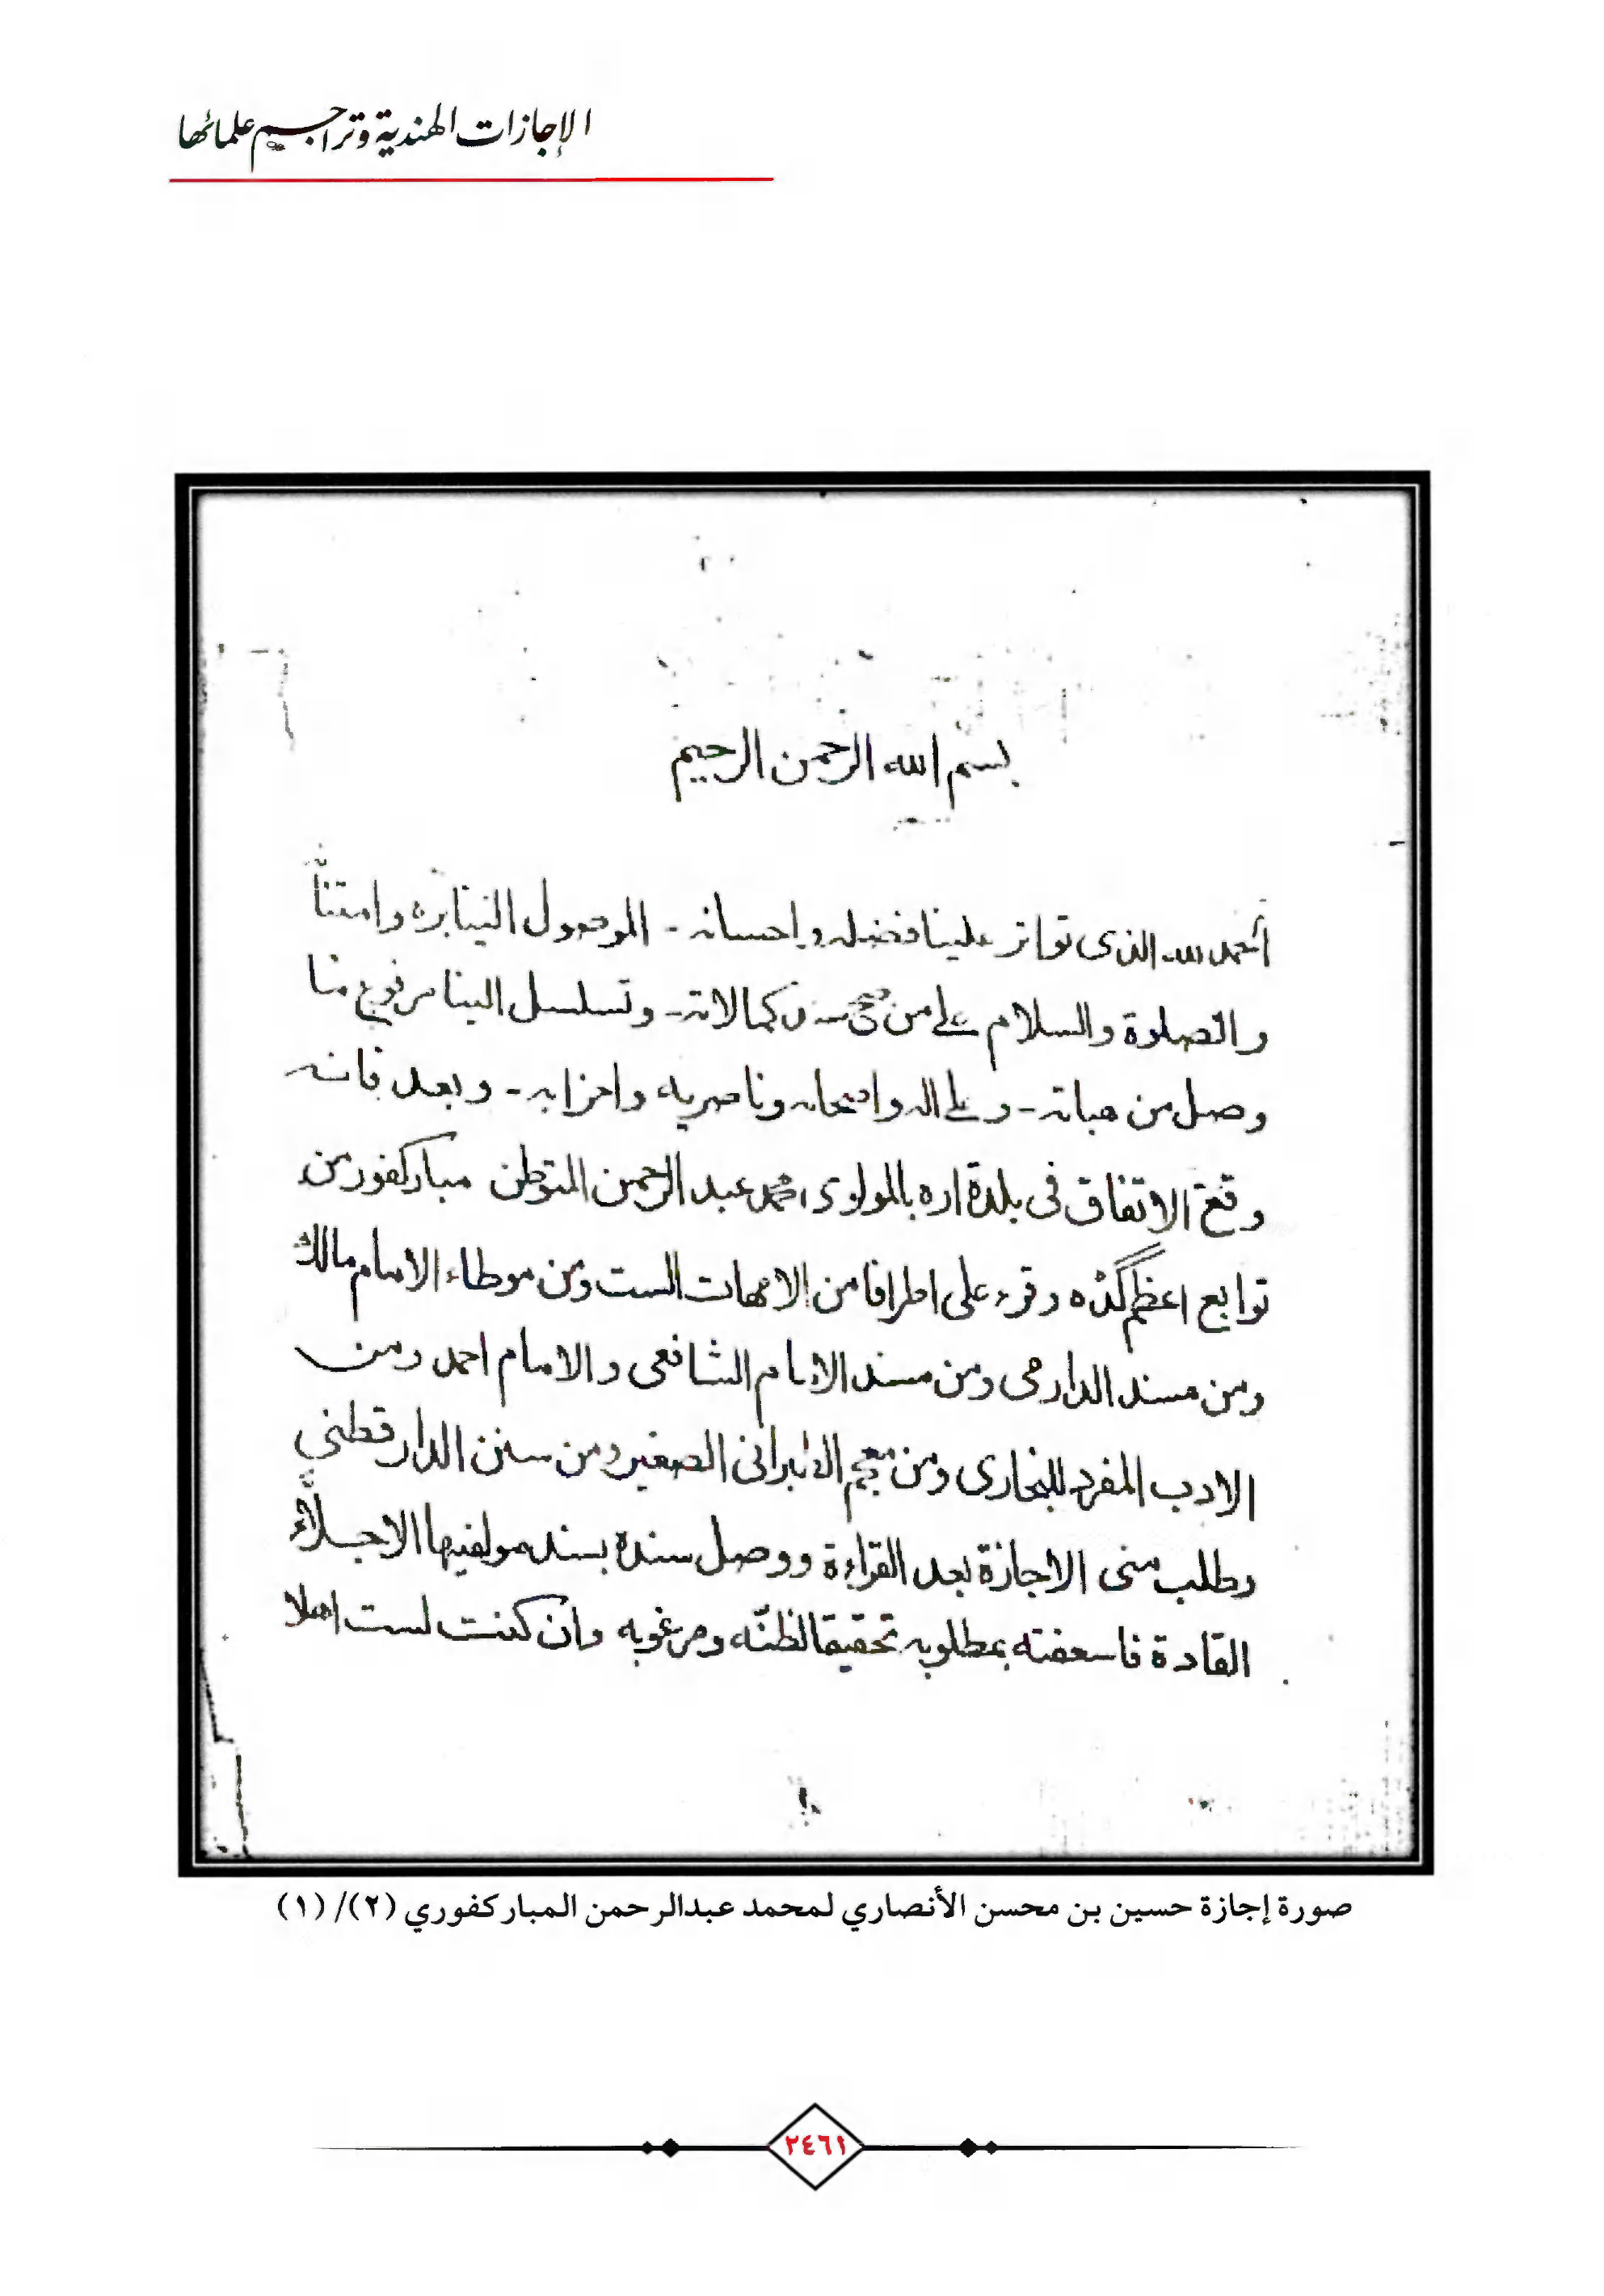 الإجازات الهندية وتراجم علمائها
بسم الله الرحمن الرحيم
الحمد لله الذى تواتر علينا فضله واحسانه - الموصول الينا بره وامتنا
والصلوة والسلام على من كمالاته - وتسلسل الينا مرفوع منا
وصل من هباته - وعلى اله واصحابه وناصريه واحزابه - وبعد فانه
وقع الاتفاق فى بلدة اره بالمولوى محمد عبد الرحمن المتوطن مباركفور من
توابع اعظم گڈه وقرء على اطرافا من الامهات الست ومن موطاء الامام مالك
ومن مسند الدارمى ومن مسند الامام الشافعى والامام احمد ومن
الادب المفرد للبخارى ومن معجم الطبرانى الصغير ومن سنن الدارقطنى
وطلب منى الاجازة بعد القراءة ووصل سنده بسند مولفيها الاجلاء
القادة فاسعفته بمطلوبه تحقيقا لظنّه ومرغوبه وان كنت لست اهلا
صورة إجازة حسين بن محسن الأنصاري لمحمد عبدالرحمن المباركفوري (٢)/ (١)
٢٤٦١